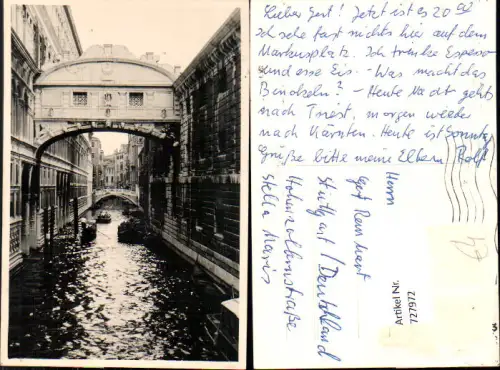 Lieber Gert! Jetzt ist es 20 00
Ich sehe fast nichts hier auf dem
Markusplatz. Ich trinke Espresso
und esse Eis. - Was macht das
- Heute Nacht gehts
nach Triest, morgen wieder
nach Kärnten. Heute ist Sonntag
Grüße bitte meine Eltern Rolf
Herrn
Gert
Stuttgart / Deutschland
Hohenzollernstraße
Stella Maris
Artikel Nr.
727972